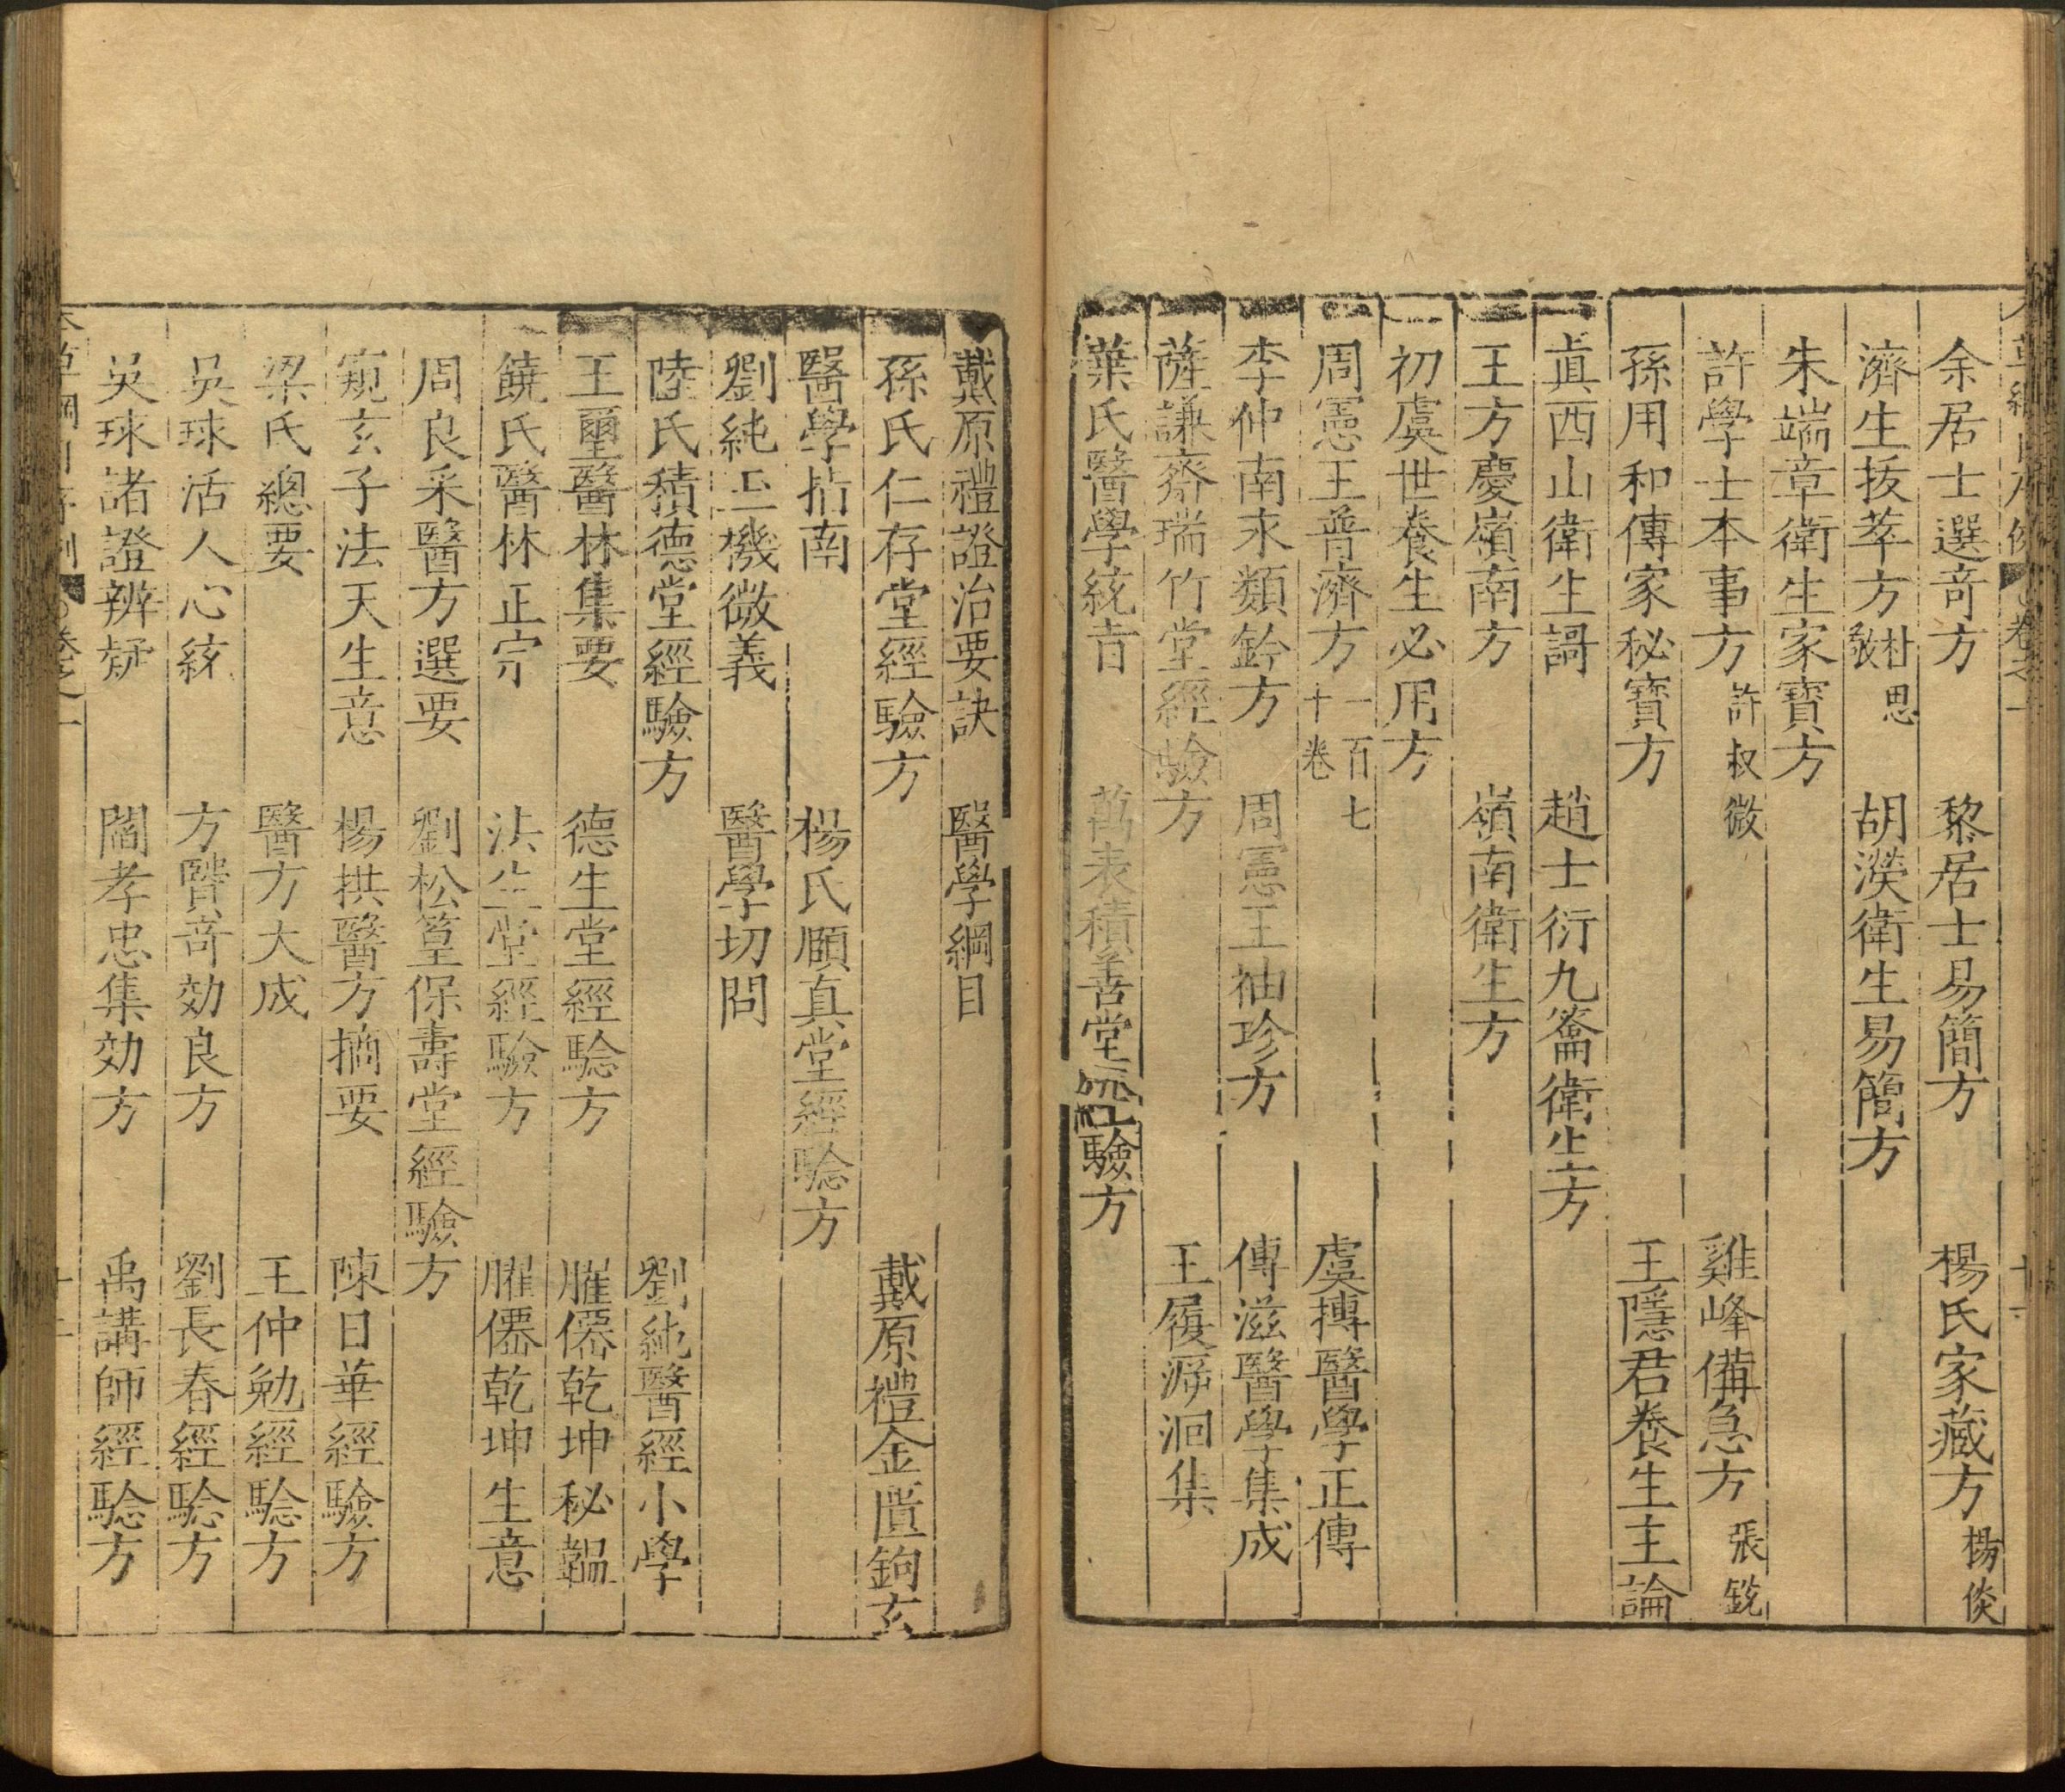 余居士選奇方　黎居士易簡方　楊氏家藏方 楊倓
濟生拔萃方 杜思敬　胡濙衛生易簡方
朱端章衛生家寶方
許學士本事方 許叔微　雞峰備急方 張銳
孫用和傳家秘寶方　王隱君養生主論
眞西山衛生謌　趙士衍九籥衛生方
王方慶嶺南方　嶺南衛生方
初虞世養生必用方
周憲王普濟方 一百七十卷　虞摶醫學正傳
李仲南永類鈐方　周憲王袖珍方　傅滋醫學集成
薩謙齋瑞竹堂經驗方　王履泝洄集
葉氏醫學統旨　萬表積善堂經驗方
戴原禮證治要訣　醫學綱目
孫氏仁存堂經驗方　戴原禮金匱鉤玄
醫學指南　楊氏頤真堂經騐方
劉純玉機微義　醫學切問
陸氏積德堂經驗方　劉純醫經小學
王璽醫林集要　德生堂經騐方　臞僊乾坤秘韞
饒氏醫林正宗　法生堂經驗方　臞僊乾坤生意
周良采醫方選要　劉松篁保壽堂經驗方
窺玄子法天生意　楊拱醫方摘要　陳日華經驗方
梁氏總要　醫方大成　王仲勉經騐方
吳球活人心統　方賢奇効良方　劉長春經騐方
吳球諸證辨疑　閻孝忠集効方　禹講師經騐方